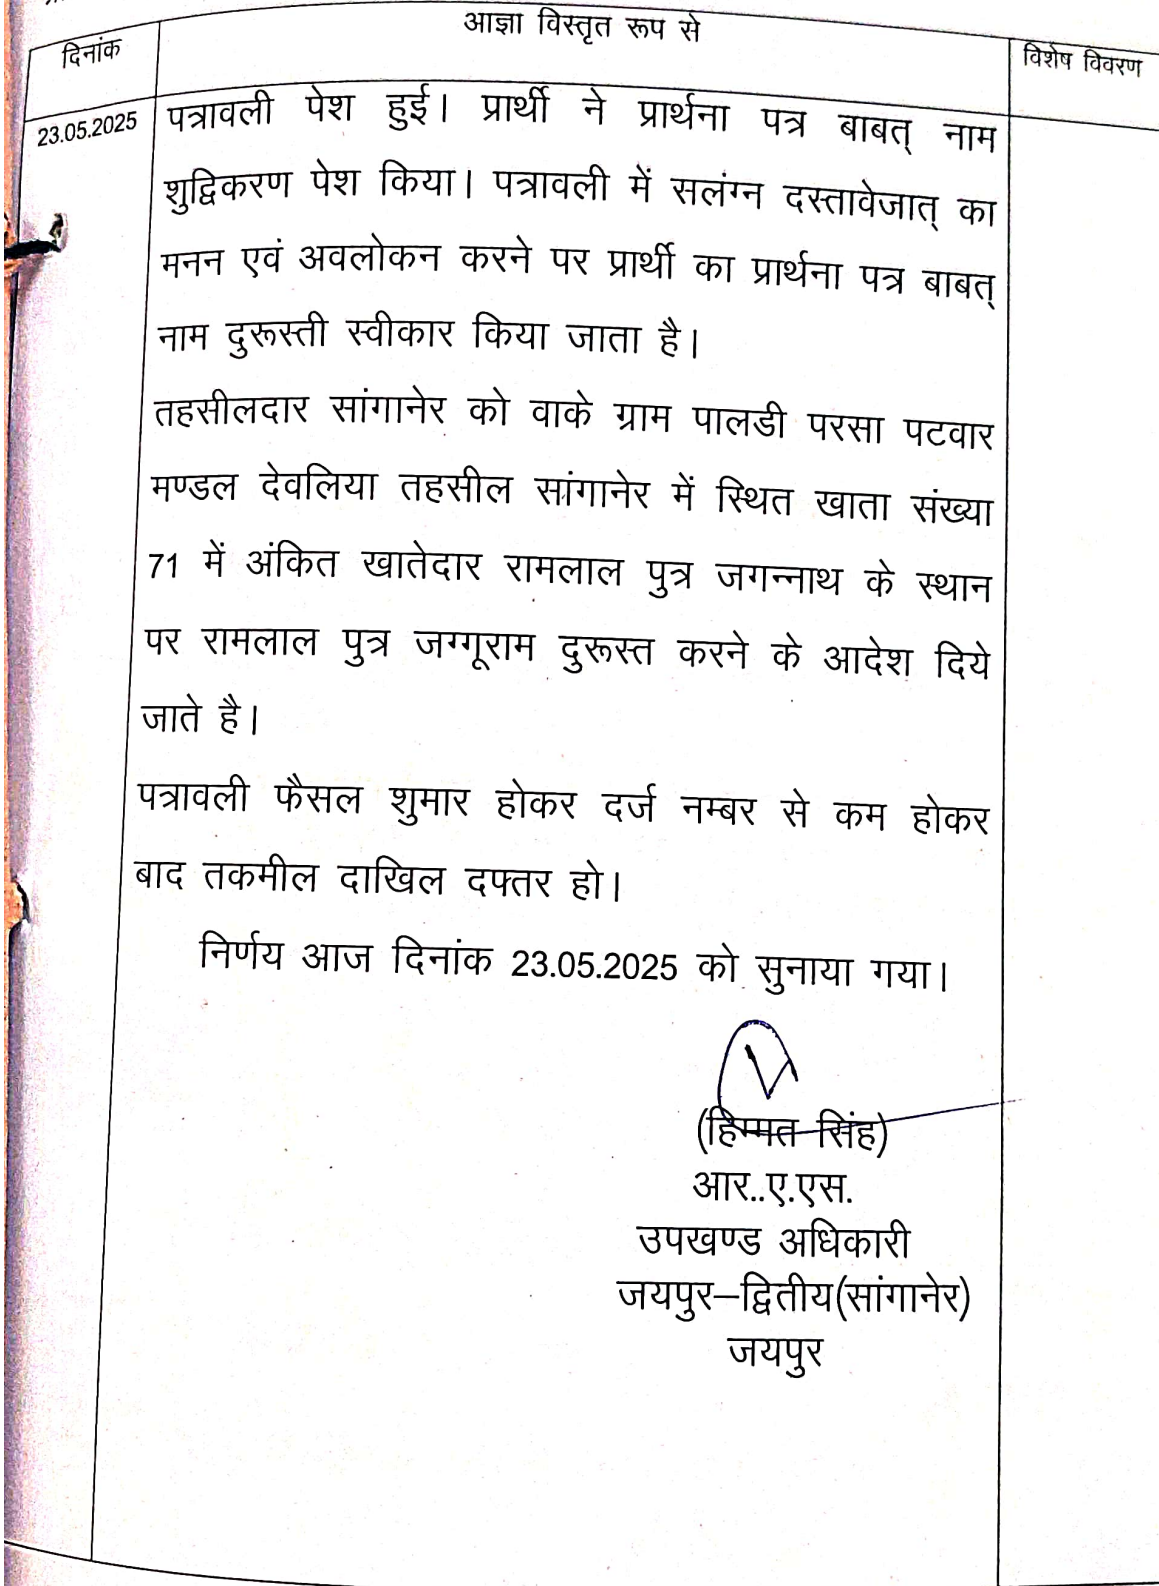 आज्ञा विस्तृत रूप से
दिनांक
विशेष विवरण
23.05.2025
पत्रावली पेश हुई। प्रार्थी ने प्रार्थना पत्र बाबत् नाम
शुद्विकरण पेश किया। पत्रावली में सलंग्न दस्तावेजात् का
मनन एवं अवलोकन करने पर प्रार्थी का प्रार्थना पत्र बाबत्
नाम दुरूस्ती स्वीकार किया जाता है।
तहसीलदार सांगानेर को वाके ग्राम पालडी परसा पटवार
मण्डल देवलिया तहसील सांगानेर में स्थित खाता संख्या
71 में अंकित खातेदार रामलाल पुत्र जगन्नाथ के स्थान
पर रामलाल पुत्र जग्गूराम दुरूस्त करने के आदेश दिये
जाते है।
पत्रावली फैसल शुमार होकर दर्ज नम्बर से कम होकर
बाद तकमील दाखिल दफ्तर हो।
निर्णय आज दिनांक 23.05.2025 को सुनाया गया।
(हिम्मत सिंह)
आर..ए.एस.
उपखण्ड अधिकारी
जयपुर–द्वितीय(सांगानेर)
जयपुर